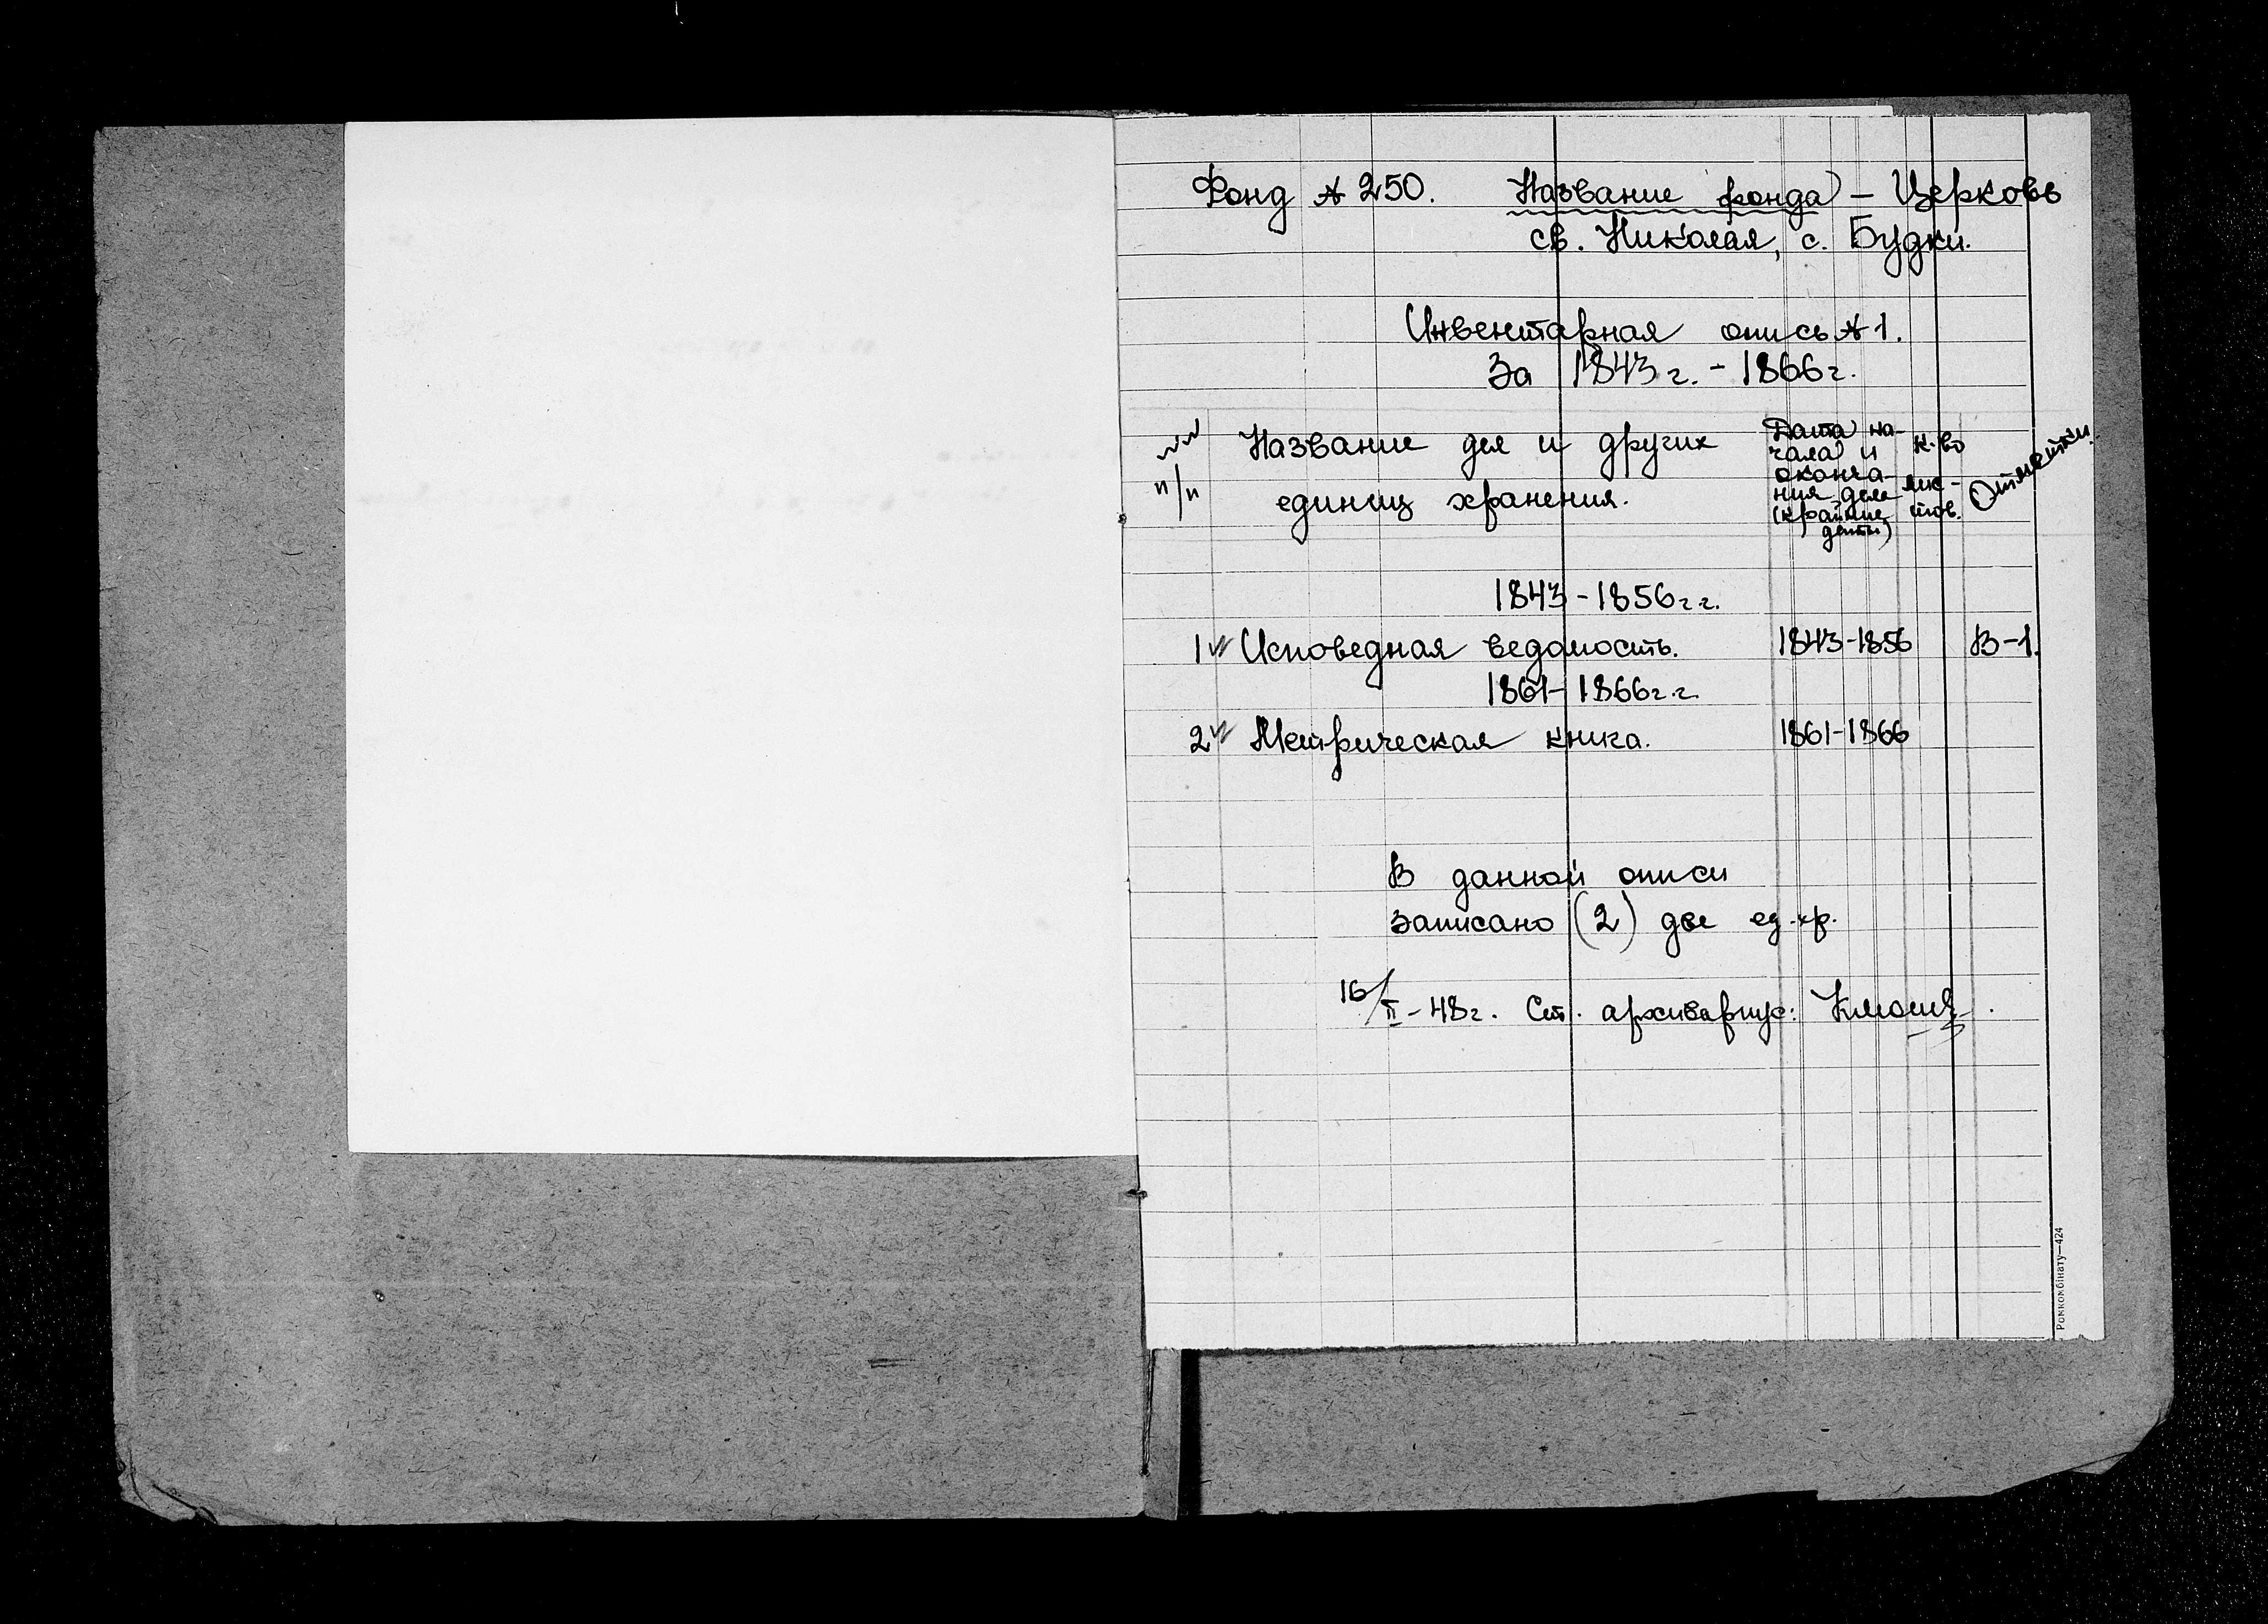 Фонд № 250. Название фонда – Церковь
св. Николая, с. Будки.
Инвентарная опись № 1.
За 1843 г. - 1866 г.
№№ п/п
Название дел и других
единиц хранения.
Дата на-
чала и
оконча-
ния дела
(крайние
даты)
к-во
лис-
тов.
Отметки.
1843 - 1856 г.г.
1 Исповедная ведомость. 1843-1856 В-1.
1861 - 1866 г.г.
2 Метрическая книга. 1861-1866
В данной описи
записано (2) две ед. хр.
16/II - 48 г. Ст. архивариус:
Ромкомбінату—424